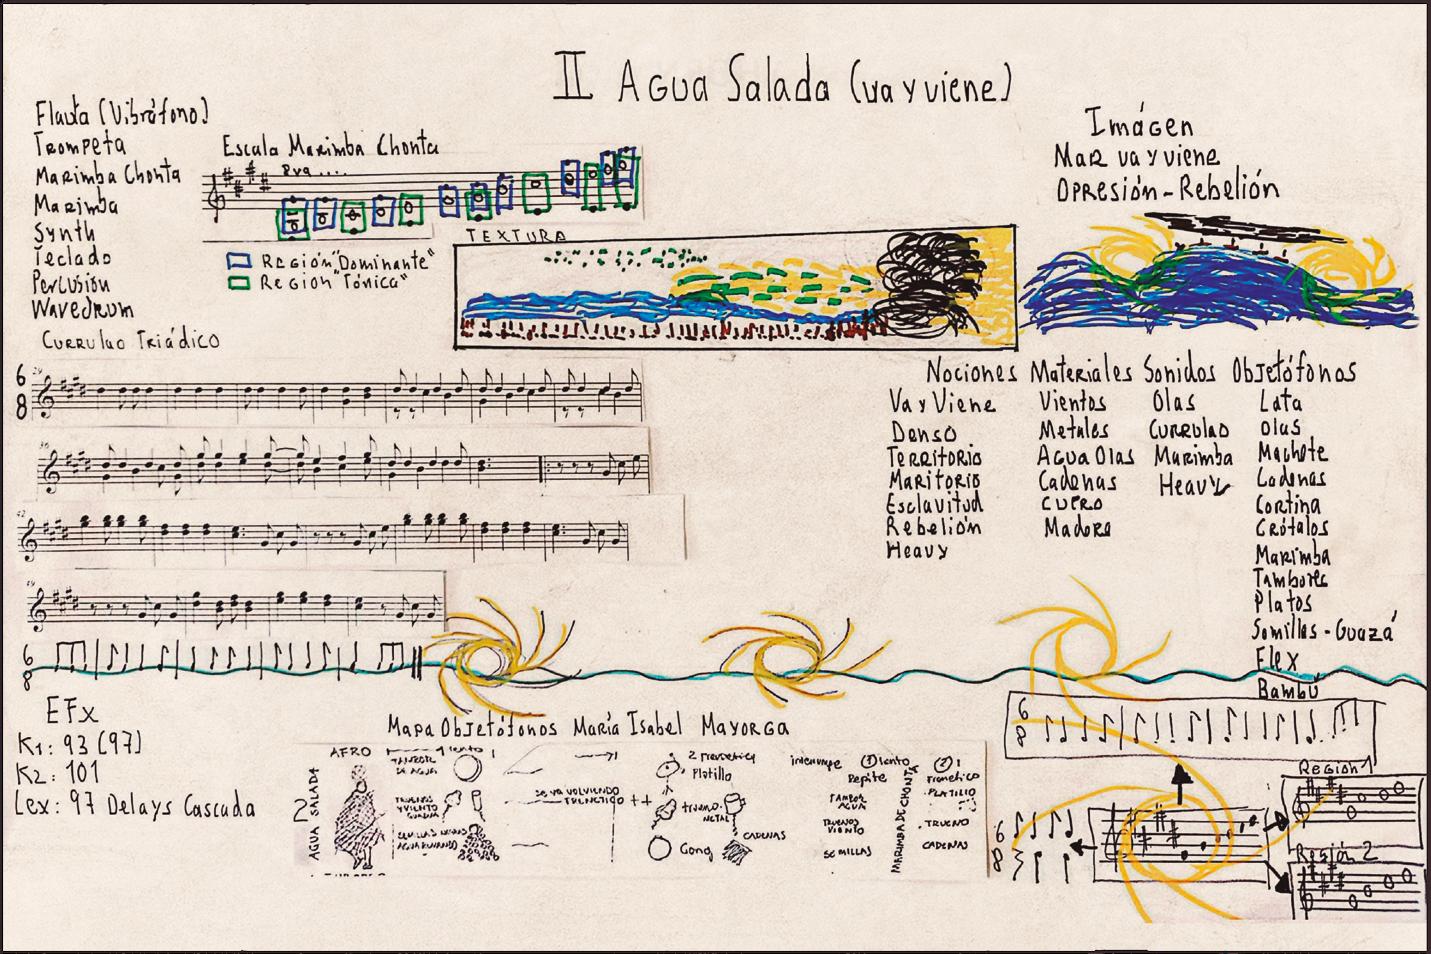 II Agua Salada (va y viene)
Flauta (Vibráfono)
Trompeta
Marimba Chonta
Marimba
Synth
Teclado
Percusión
Wavedrum
Escala Marimba Chonta
8va ....
Región "Dominante"
Region "Tónica"
TEXTURA
Imágen
Mar va y viene
Opresión-Rebelión
Currulao Triádico
6
8
Nociones
Va y Viene
Denso
Territorio
Maritorio
Esclavitud
Rebelión
Heavy
Materiales
Vientos
Metales
Agua Olas
Cadenas
Cuero
Madera
Sonidos
Olas
Currulao
Marimba
Heavy
Objetófonos
Lata
Olas
Machete
Cadenas
Cortina
Crótalos
Marimba
Tambores
Platos
Semillas - Guazá
Flex
Bambú
6
8
EFx
K1: 93 (97)
K2: 101
Lex: 97 Delays Cascada
Mapa Objetófonos María Isabel Mayorga
AFRO
2 AGUA SALADA
TAMBOR DE AGUA
TRUENOS
Y VIENTO
SE VA VOLVIENDO
FRENÉTICO ++
Platillo
METAL
Gong
CADENAS
Repite
TAMBOR
AGUA
TRUENOS
VIENTO
SEMILLAS
MARIMBA DE CHONTA
Frenetico
PLATILLO
TRUENO
CADENAS
6
8
6
8
Región 1
Región 2